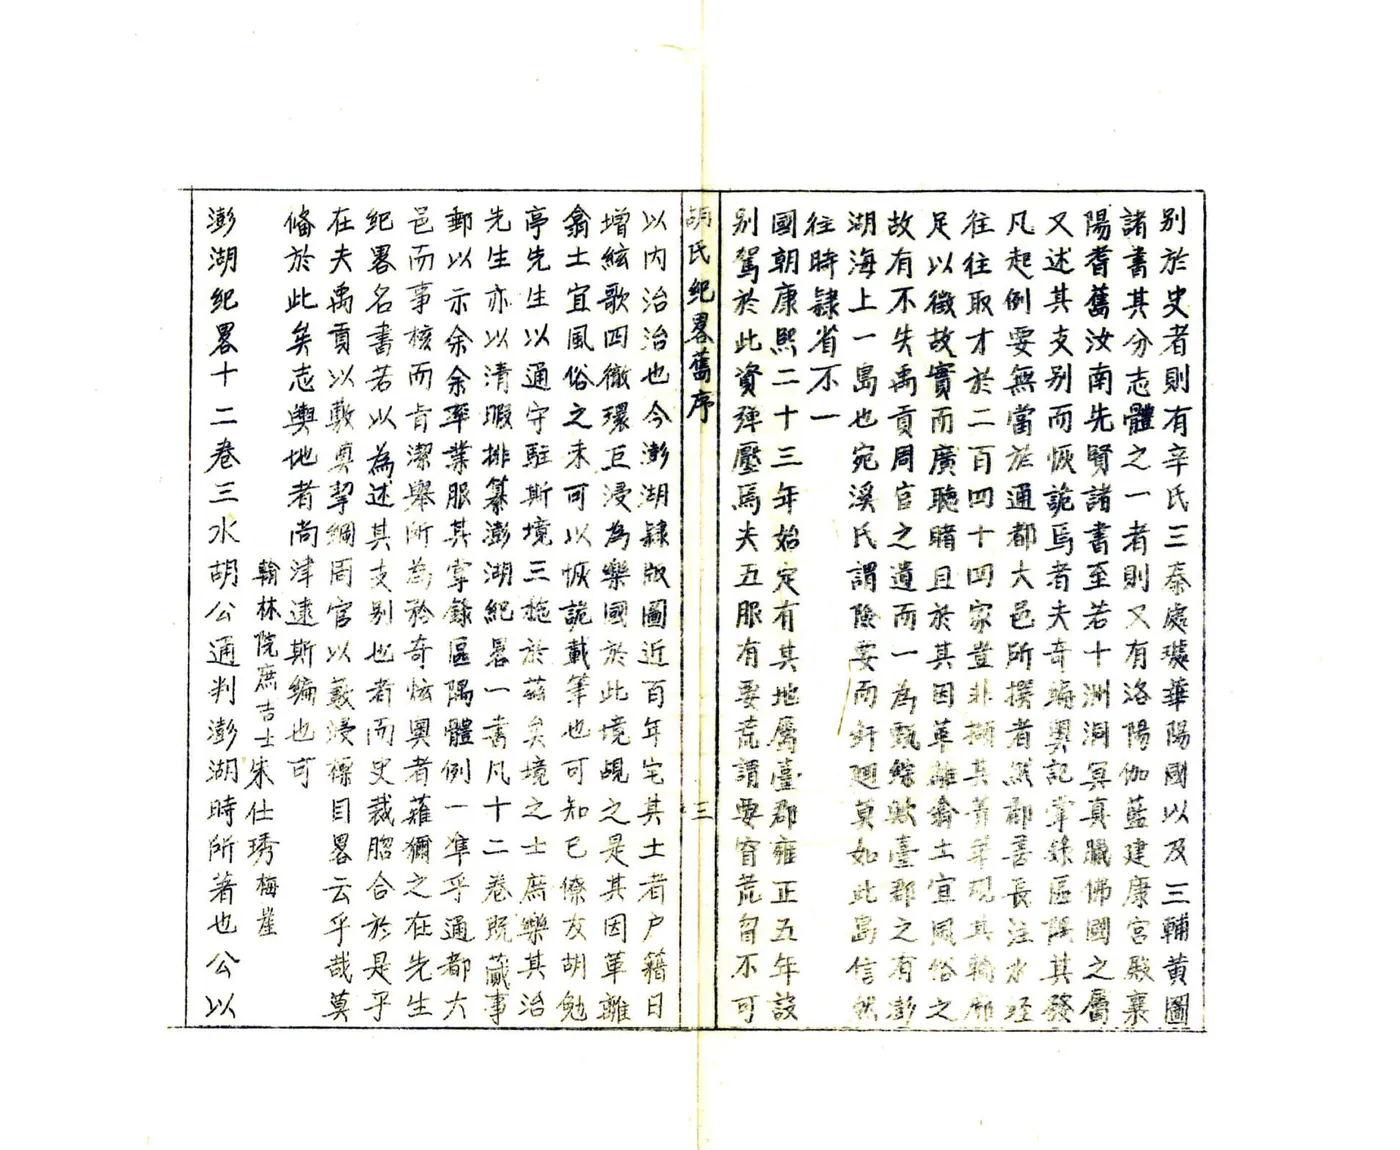 別於史者則有辛氏三秦處璩華陽國以及三輔黃圖
諸書其分志體之一者則又有洛陽伽藍建康宮殿襄
陽耆舊汝南先賢諸書至若十洲洞冥真臘佛國之屬
又述其支别而恢詭焉者夫奇編輿記掌錄區隅其發
凡起例要無當於通都大邑所撰者然酈善長注水經
往往取才於二百四十四家豈非擷其菁華現其輪廓
足以徵故實而廣聽睹且於其因革離會土宜風俗之
故有不失禹貢周官之遺而一為甄綜歟臺郡之有澎
湖海上一島也宛溪氏謂險要而紆廻莫如此島信然
往時隸省不一
國朝康熙二十三年始定有其地屬臺郡雍正五年設
别駕於此資弹壓焉夫五服有要荒謂要官荒畧不可
胡氏紀畧舊序
三
以内治治也今澎湖隸版圖近百年宅其土者户籍日
增絃歌四徹環巨浸為樂國於此境覘之是其因革離
翕土宜風俗之未可以恢詭載筆也可知已僚友胡勉
亭先生以通守駐斯境三稔於茲矣境之士庶樂其治
先生亦以清暇排纂澎湖紀畧一書凡十二卷既蕆事
郵以示余余卒業服其掌錄區隅體例一準乎通都大
邑而事核而肯潔舉所為矜奇炫異者薙獮之在先生
紀畧名書若以為述其支别也者而史裁脗合於是乎
在夫禹貢以敷奠挈綱周官以藪浸標目畧云乎哉莫
脩於此矣志輿地者尚津逮斯編也可
翰林院庶吉士朱仕琇梅崖
澎湖紀畧十二卷三水胡公通判澎湖時所著也公以